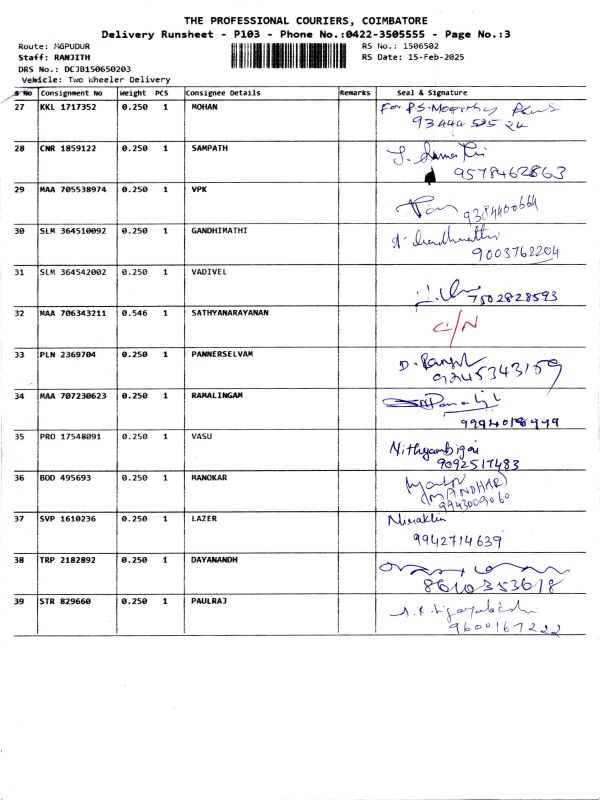 THE PROFESSIONAL COURIERS, COIMBATORE
Delivery Runsheet - P103 - Phone No.:0422-3505555 - Page No.:3
Route: MGPUDUR
RS No.: 1506502
Staff: RANJITH
RS Date: 15-Feb-2025
DRS No.: DCJB150650203
Vehicle: Two Wheeler Delivery
S No Consignment No Weight PCS Consignee Details Remarks Seal & Signature
27 KKL 1717352 0.250 1 MOHAN For P.S. Moorthy
93444
28 CNR 1859122 0.250 1 SAMPATH
9578462863
29 MAA 705538974 0.250 1 VPK
9384400664
30 SLM 364510092 0.250 1 GANDHIMATHI
9003762204
31 SLM 364542002 0.250 1 VADIVEL
7502828593
32 MAA 706343211 0.546 1 SATHYANARAYANAN
C/N
33 PLN 2369704 0.250 1 PANNERSELVAM D.
9245343159
34 MAA 707230623 0.250 1 RAMALINGAM
35 PRO 17548091 0.250 1 VASU Nithyambigai
9092517483
36 BOD 495693 0.250 1 MANOKAR
(MANOHAR)
9943009060
37 SVP 1610236 0.250 1 LAZER
9942714639
38 TRP 2182892 0.250 1 DAYANANDH
8610353618
39 STR 829660 0.250 1 PAULRAJ
9600167222